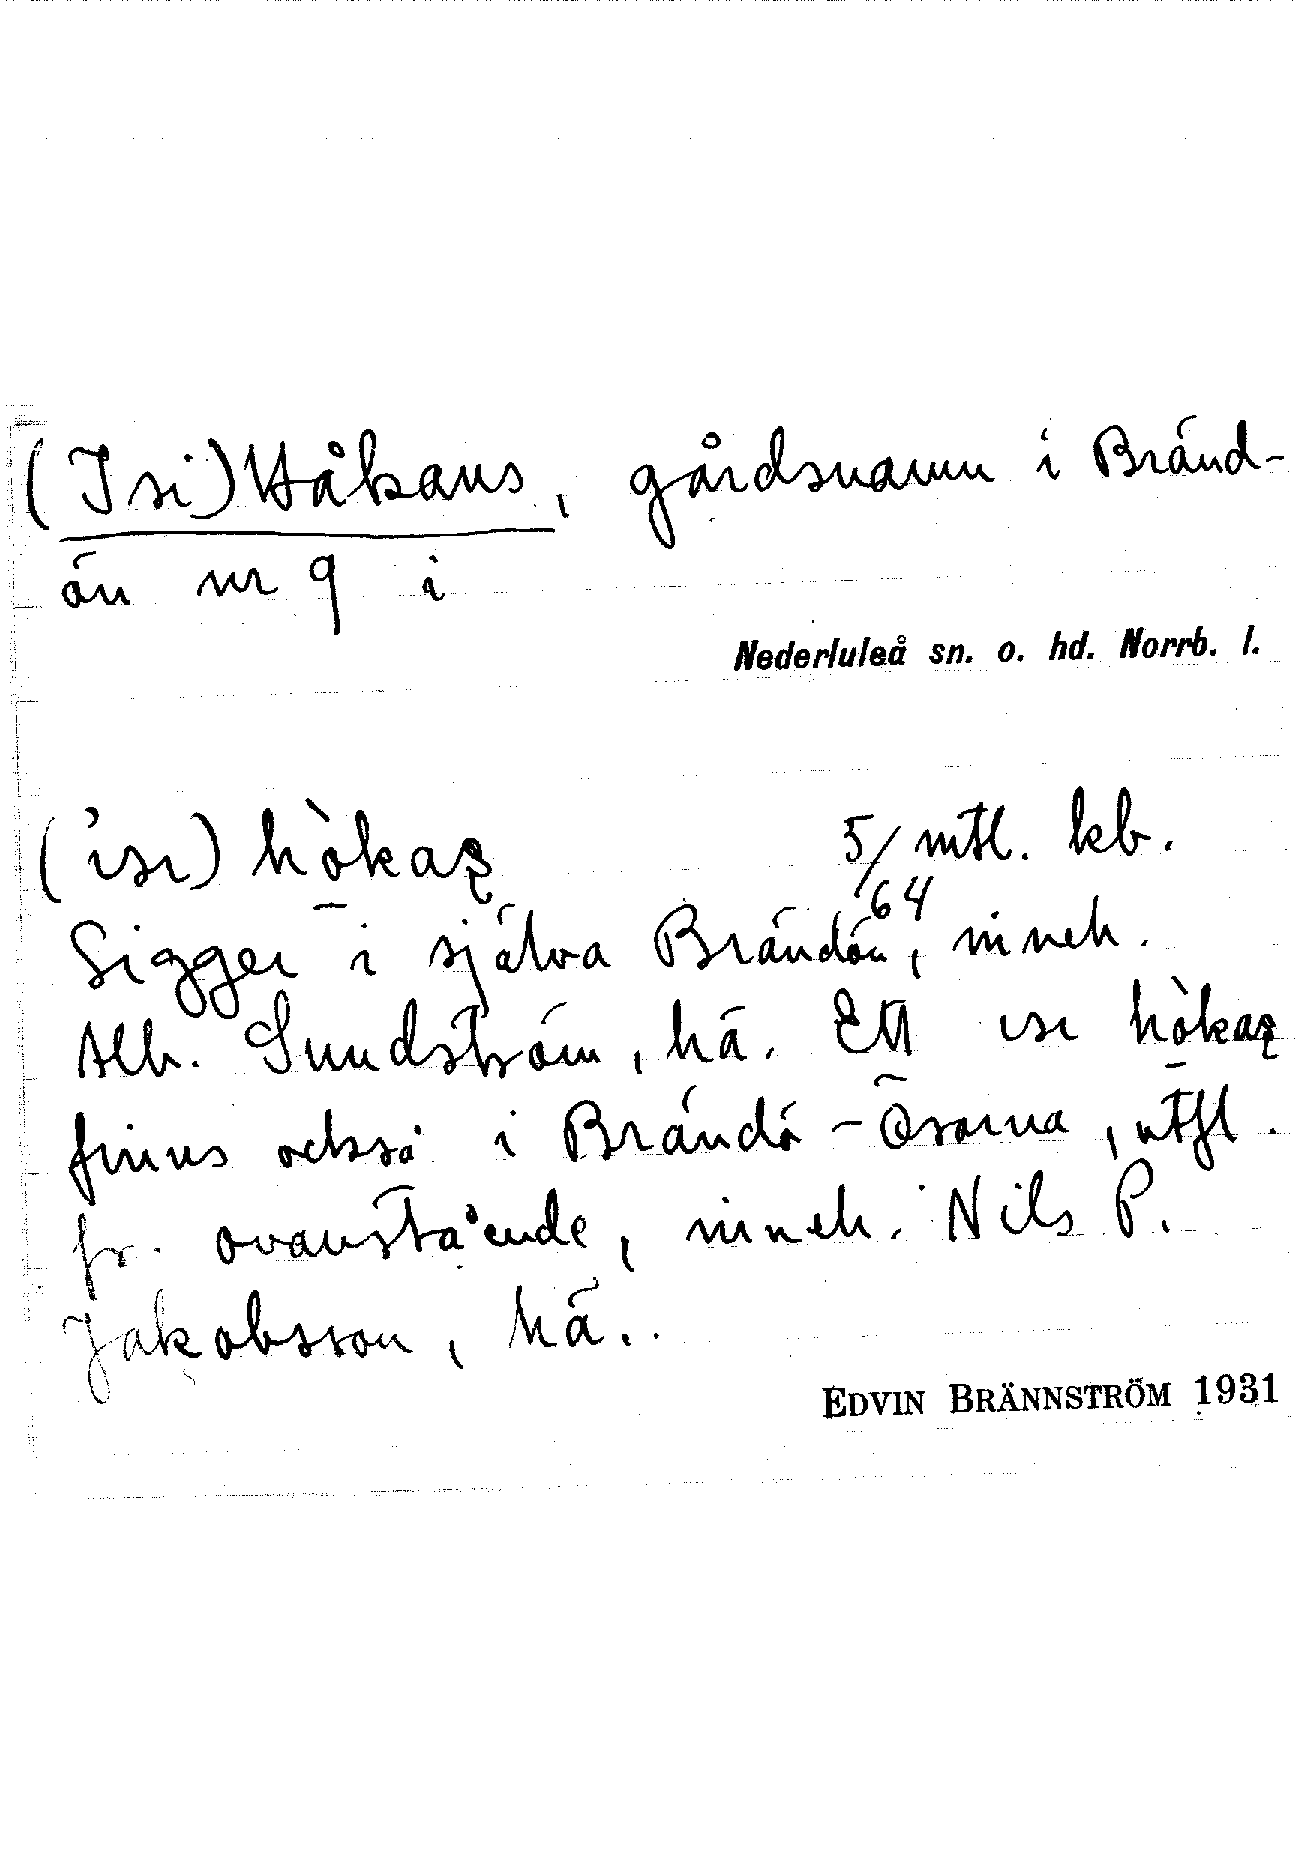 (Isi) Håkans, gårdsnamn i Bränd-
ön nr 9 i
Nederluleå sn. o. hd. Norrb. l.
(ìsı) hò̱kaʂ 5/64 mtl. kb.
Ligger i själva Brändön, inneh.
Alb. Sundström, hä. Ett ısı hò̱kaʂ
finns också i Brändö-Ösarna, utfl.
fr. ovanstående, inneh. Nils P.
Jakobsson, hä.
EDVIN BRÄNNSTRÖM 1931